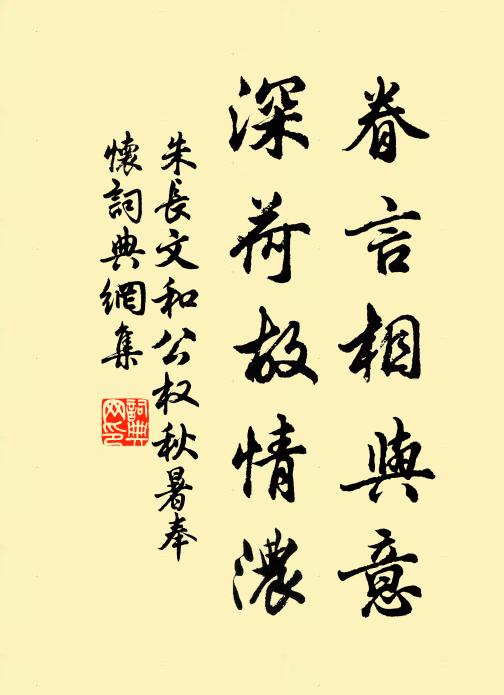 眷言相與意
深荷故情濃
朱長文和公权秋暑奉
懷詞典網集
詞典
网印